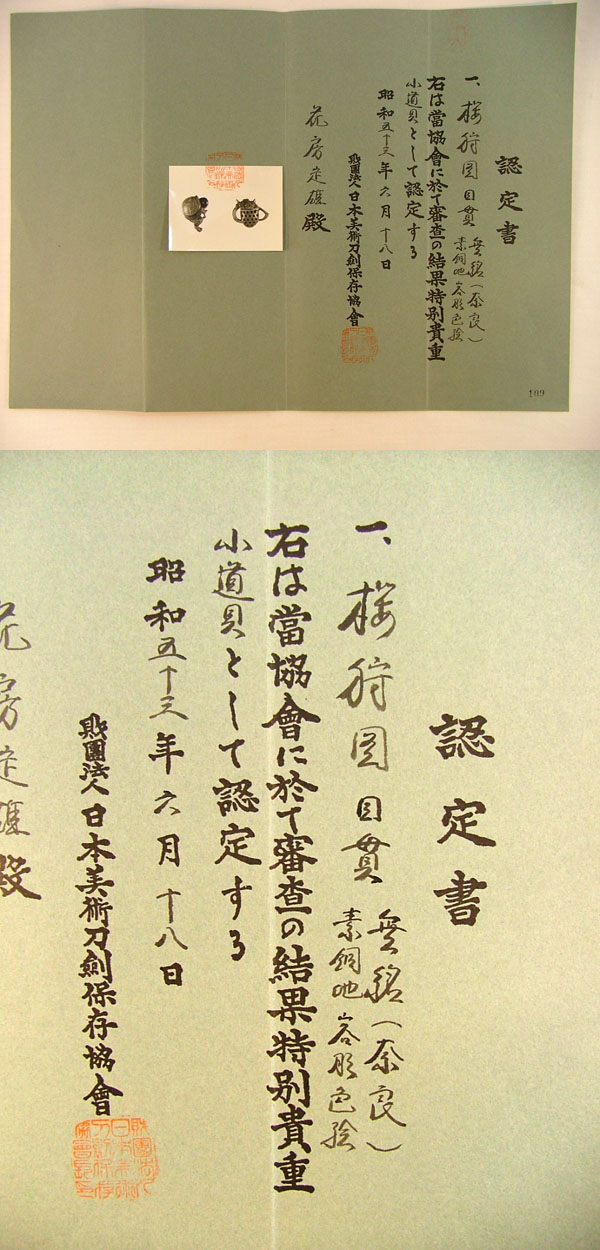 認定書
一、桜狩図目貫 無銘（奈良）
素銅地容彫色絵
右は當協會に於て審査の結果特別貴重
小道具として認定する
昭和五十三年六月十八日
財團法人日本美術刀劍保存協會
花房定雄殿
109
認定書
一、桜狩図目貫 無銘（奈良）
素銅地容彫色絵
右は當協會に於て審査の結果特別貴重
小道具として認定する
昭和五十三年六月十八日
財團法人日本美術刀劍保存協會